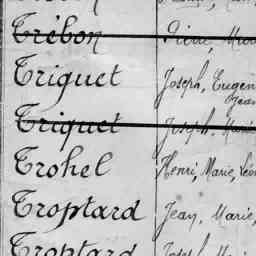 Trébon Pierre, Marie
Triguet Joseph, Eugèn
Jean
Triquet Joseph, Marie
Trohel Henri, Marie, Léon
Troptard Jean, Marie,
Troptard Joseph